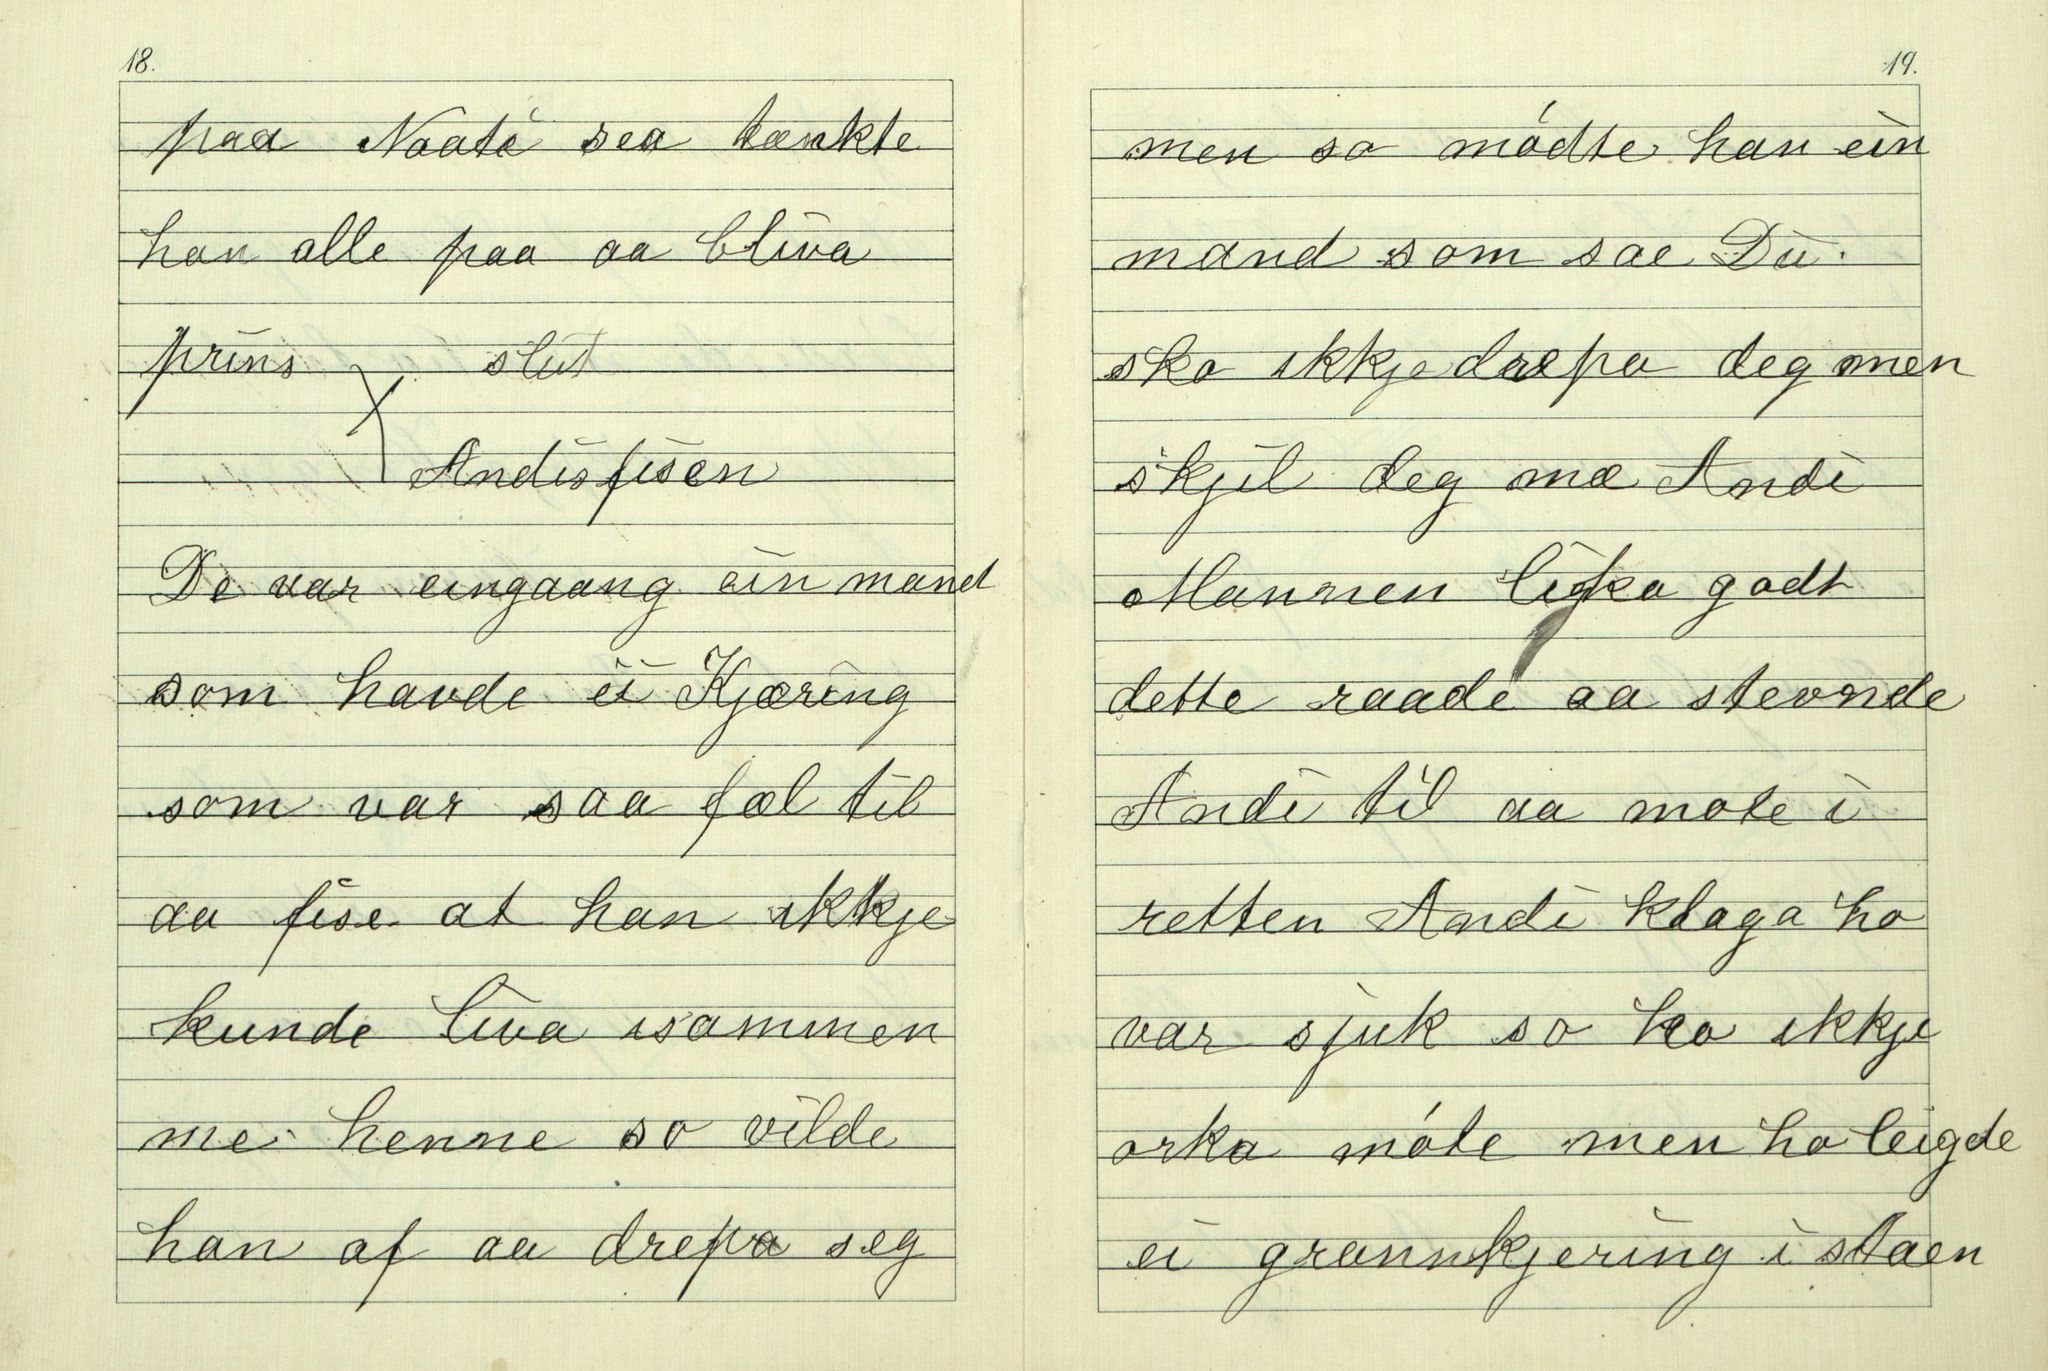 18.
paa Naate sea tænkte
han alle paa aa bliva
prins slut
Andisfisen
De var eingaang ein mand
som havde ei Kjæring
som var saa fæl til
aa fise at han ikkje
kunde liva isammen
me henne so vilde
han af aa drepa seg
19.
men so mödte han ein
mand som sae Du
sko ikkje dræpa deg men
skjil deg mæ Andi
Mannen lika godt
dette raade aa stevnde
Andi til aa mote i
retten Andi klaga ho
var sjuk so ho ikkje
orka móte men ho leigde
ei grannkjering i staen